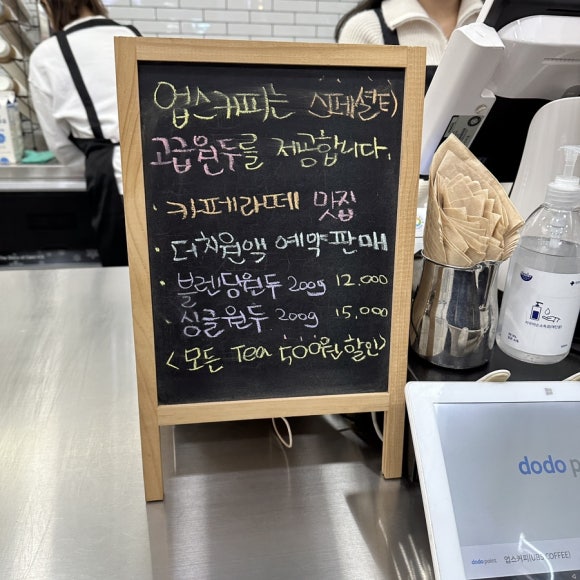 업스커피는 스페셜티
고급원두를 제공합니다.
· 카페라떼 맛집
· 더치원액 예약판매
· 블렌딩원두 200g 12.000
· 싱글원두 200g 15.000
<모든 Tea 500원 할인>
dodo p
dodo point 업스커피(UBS COFFEE)